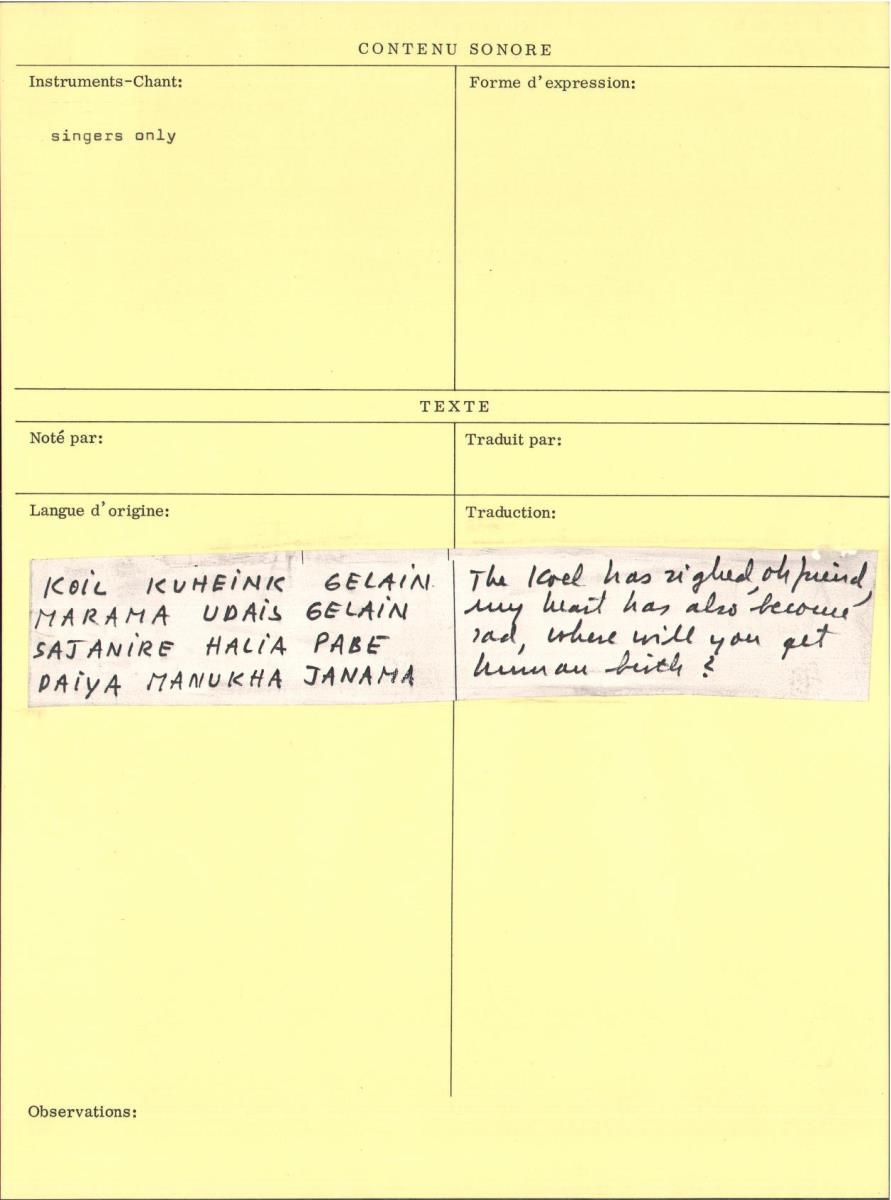 CONTENU SONORE
Instruments-Chant:
Forme d'expression:
singers only
TEXTE
Noté par:
Traduit par:
Langue d'origine:
Traduction:
KOIL KUHEINK GELAIN
MARAMA UDAIS GELAIN
SAJANIRE HALIA PABE
DAIYA MANUKHA JANAMA
The Koel has sighed, oh friend,
my heart has also become
sad, where will you get
human birth ?
Observations: